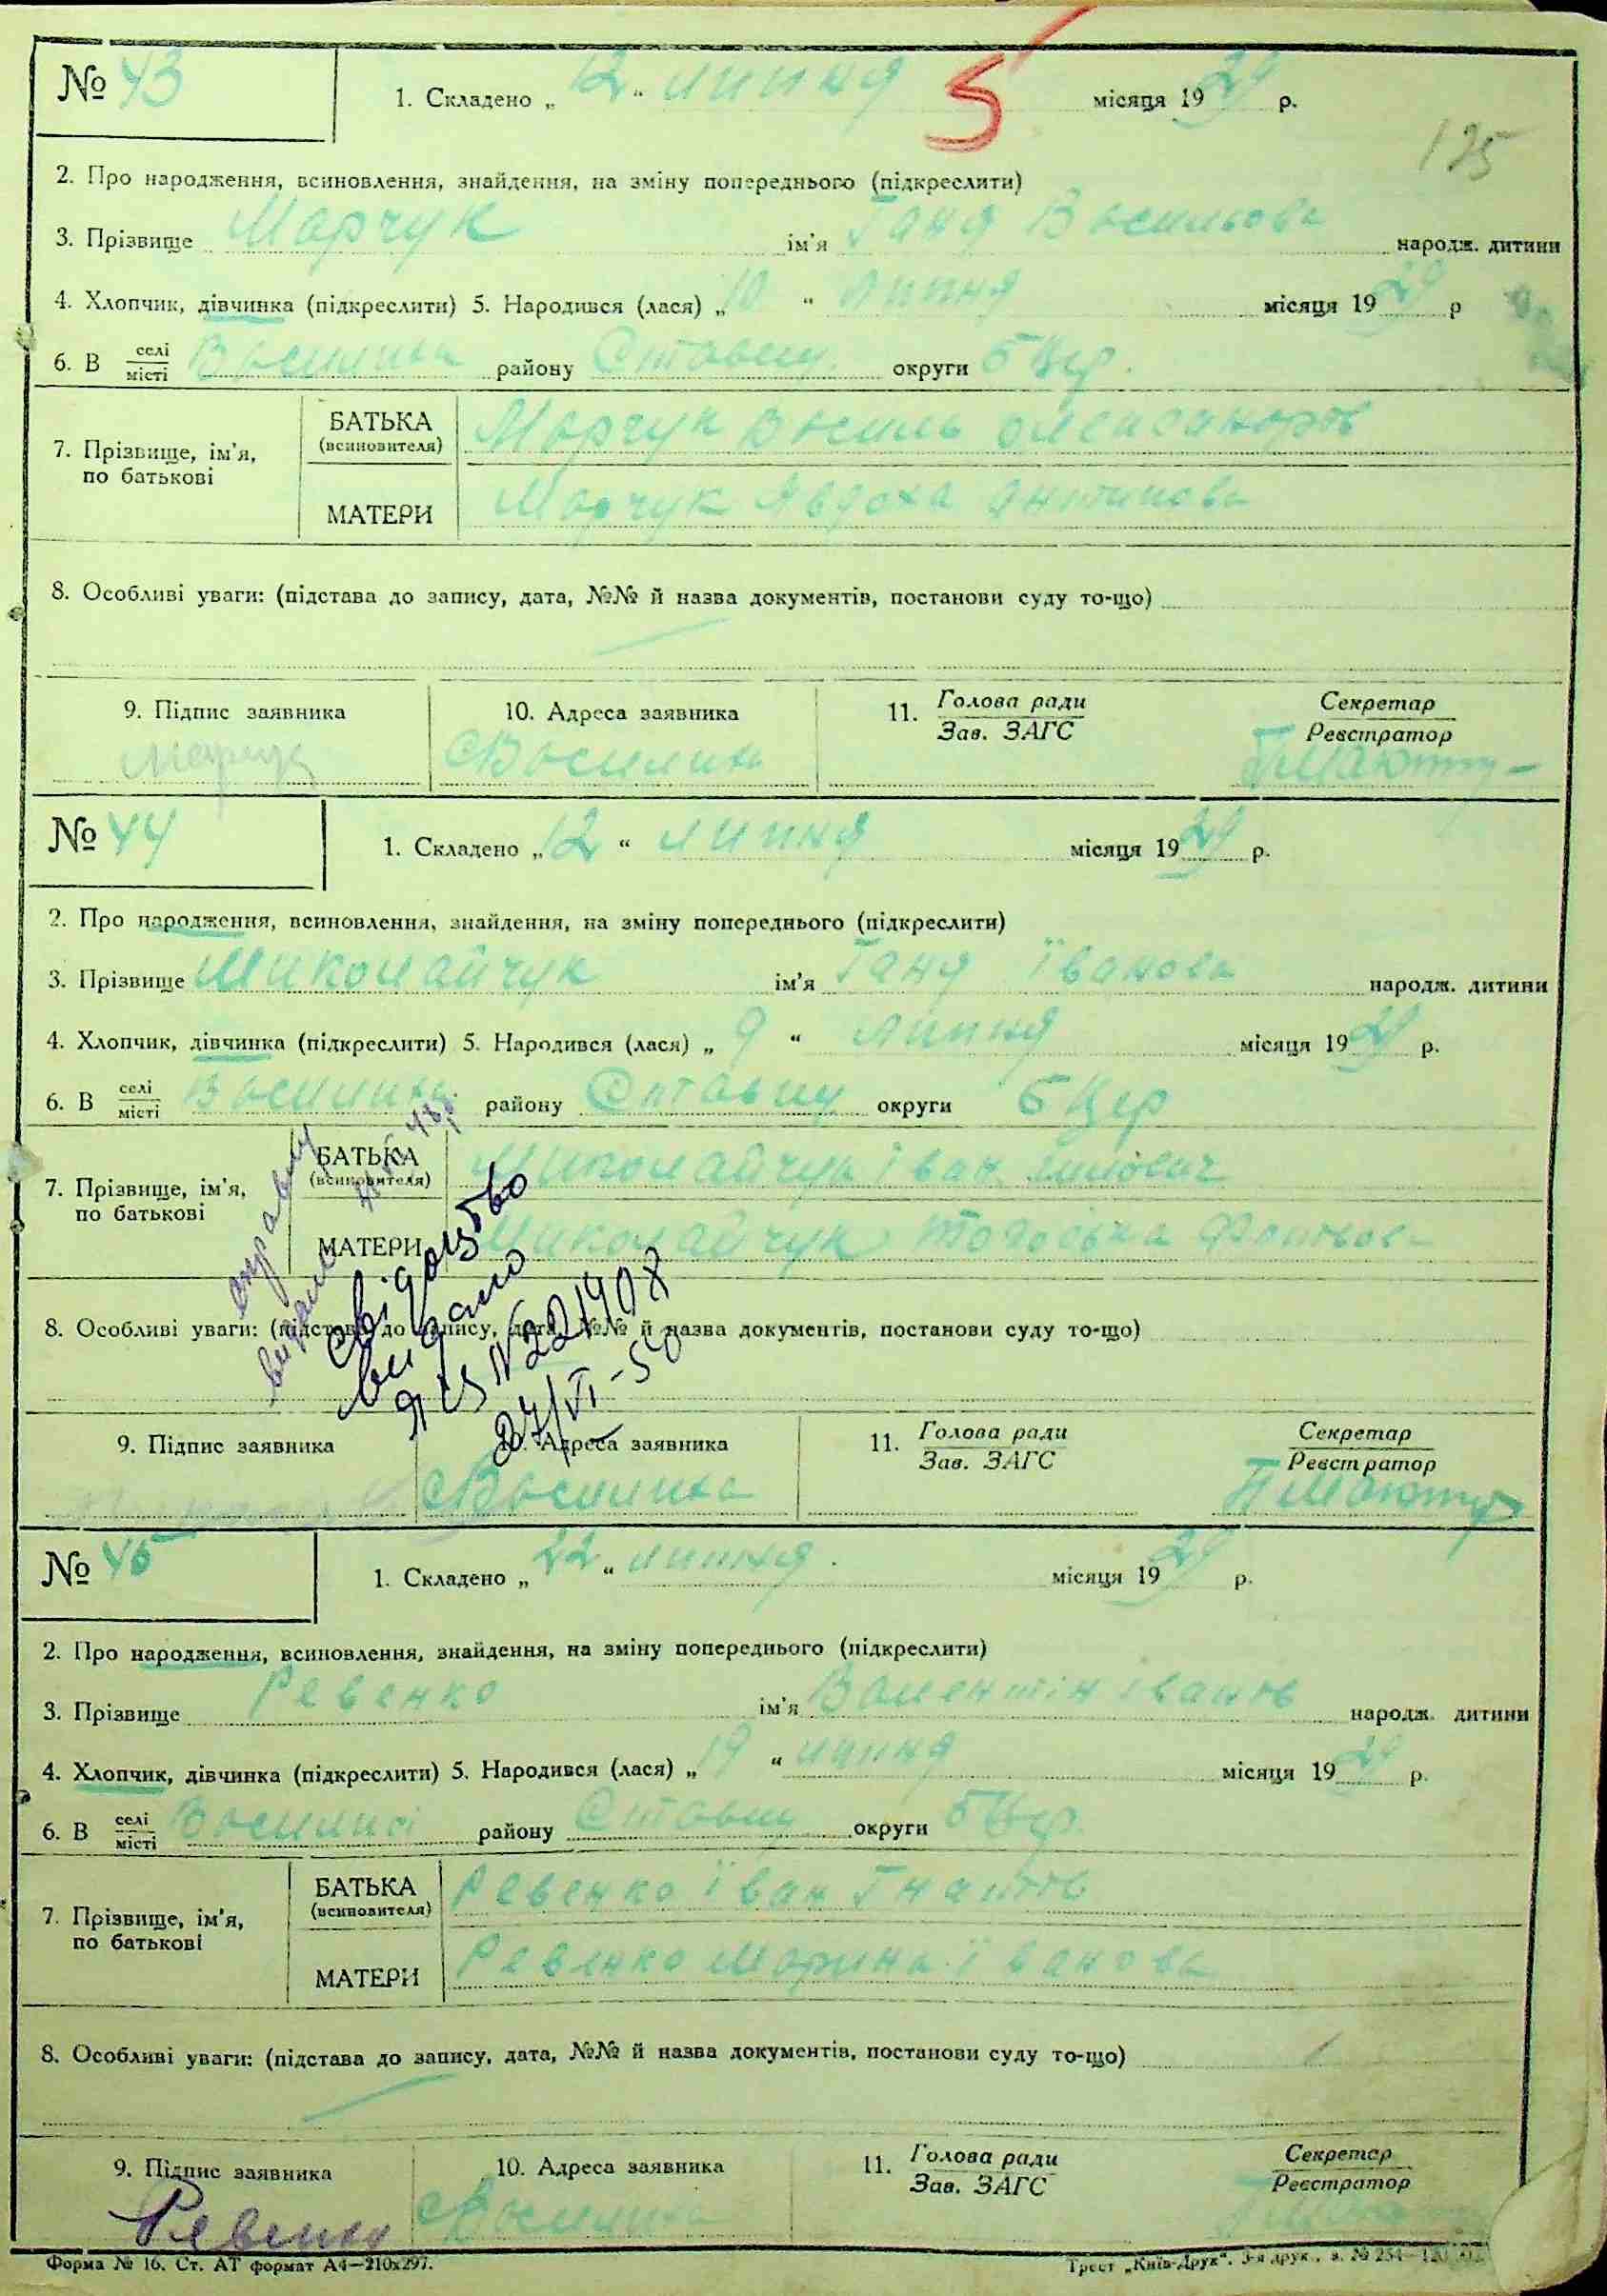 № 43 1. Складено „ 12 “ липня місяця 19 29 р.
5
125
2. Про народження, всиновлення, знайдення, на зміну попереднього (підкреслити)
3. Прізвище Марчук ім'я Ганя Васильова народж. дитини
4. Хлопчик, дівчинка (підкреслити) 5. Народився (лася) „ 10 “ липня місяця 19 29 р
6. В селі/місті Василиха району Ставищ. округи БЦер.
БАТЬКА (всиновителя) Марчук Василь Олександров
7. Прізвище, ім'я, по батькові
МАТЕРИ Марчук Явдоха Антипова
8. Особливі уваги: (підстава до запису, дата, №№ й назва документів, постанови суду то-що)
9. Підпис заявника 10. Адреса заявника 11. Голова ради/Зав. ЗАГС Секретар/Реєстратор
Марчук с Василиха
№ 44 1. Складено „ 12 “ липня місяця 19 29 р.
2. Про народження, всиновлення, знайдення, на зміну попереднього (підкреслити)
3. Прізвище Миколайчук ім'я Ганя Іванова народж. дитини
4. Хлопчик, дівчинка (підкреслити) 5. Народився (лася) „ 9 “ липня місяця 19 29 р.
6. В селі/місті Василиха району Ставищ округи БЦер
БАТЬКА (всиновителя) Миколайчук Іван
7. Прізвище, ім'я, по батькові
МАТЕРИ Миколайчук
справку
видано
свідоцтво
видано
ЯЮ №221408
27/VI-50
8. Особливі уваги: (підстава до запису, дата, №№ й назва документів, постанови суду то-що)
9. Підпис заявника 10. Адреса заявника 11. Голова ради/Зав. ЗАГС Секретар/Реєстратор
с Василиха
№ 45 1. Складено „ 22 “ липня місяця 19 29 р.
2. Про народження, всиновлення, знайдення, на зміну попереднього (підкреслити)
3. Прізвище Ревенко ім'я Валентін Іванов народж. дитини
4. Хлопчик, дівчинка (підкреслити) 5. Народився (лася) „ 19 “ липня місяця 19 29 р.
6. В селі/місті Василисі району Ставищ округи БЦер.
БАТЬКА (всиновителя) Ревенко Іван Гнатов
7. Прізвище, ім'я, по батькові
МАТЕРИ Ревенко Марина Іванова
8. Особливі уваги: (підстава до запису, дата, №№ й назва документів, постанови суду то-що)
9. Підпис заявника 10. Адреса заявника 11. Голова ради/Зав. ЗАГС Секретар/Реєстратор
Ревенко с Василиха
Форма № 16. Ст. АТ формат А4—210x297. Трест „Київ-Друк“. 3-я друк., з. № 254—